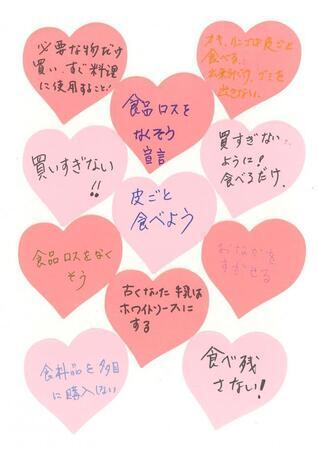 必要な物だけ
買い、すぐ料理
に使用すること!
カキ、リンゴは皮ごと
食べる。
出来るだけ、ゴミを
出さない。
食品ロスを
なくそう
宣言
買いすぎない
!!
買すぎない
ように!
食べるだけ。
皮ごと
食べよう
食品ロスをなく
そう
おなかを
すかせる
古くなった牛乳は
ホワイトソースに
する
食料品を多目
に購入しない
食べ残
さない!